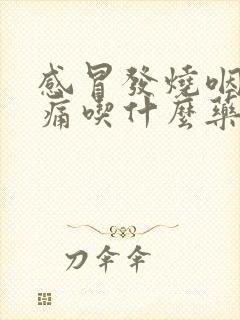 感冒發燒咽
痛喫什麼藥
刀伞伞